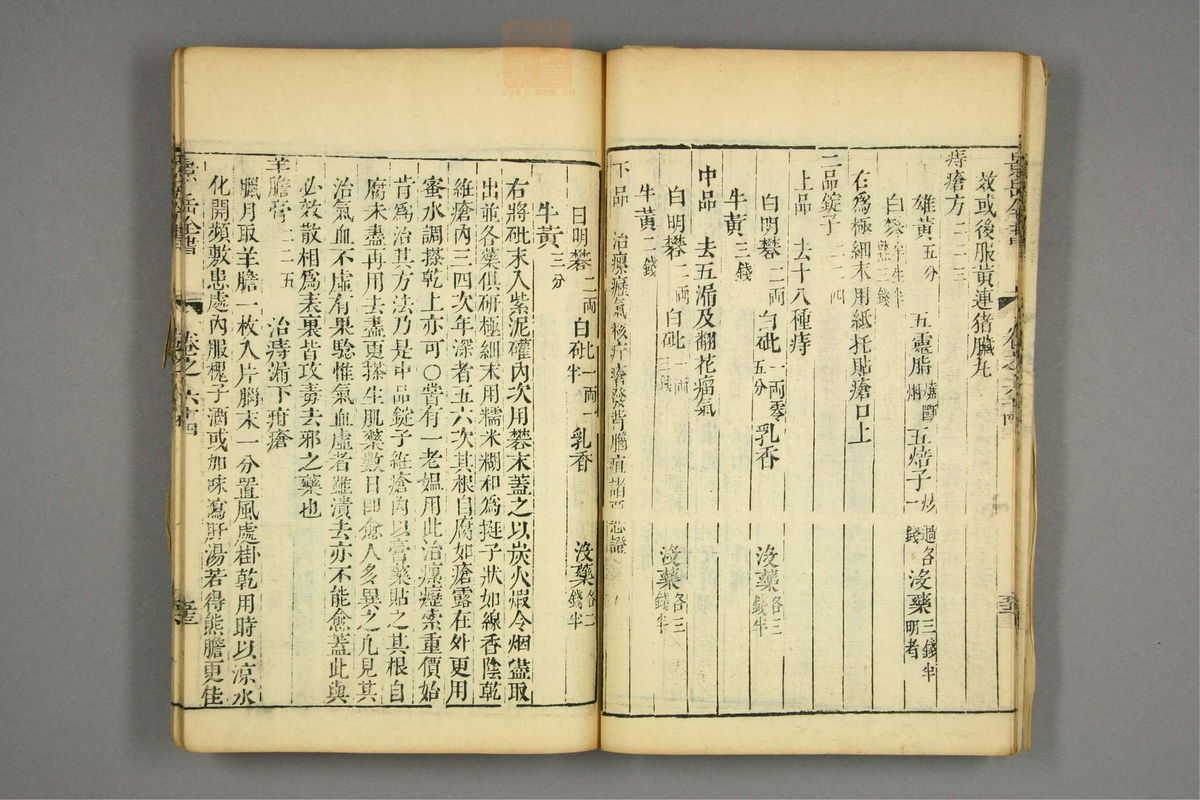 景岳全書
卷之六十四
效或後服黃連猪臟丸
痔瘡方 二二三
雄黃五分 五靈脂燒斷烟 五焙子炒 一過各錢 沒藥三錢半明者
白礬半生半熟三錢
右為極細末用紙托貼瘡口上
二品錠子 二二四
上品 去十八種痔
白明礬二両 白砒一両零五分 乳香 沒藥各三錢半
牛黃三錢
中品 去五漏及翻花瘤氣
白明礬二両 白砒一両三錢 沒藥各三錢半
牛黃二錢
下品 治瘰癧氣核疔瘡發背腦疽諸惡證
白明礬二両 白砒一両半 乳香 沒藥各二錢半
牛黃三分
右將砒末入紫泥礶內次用礬末蓋之以炭火煆令烟盡取
出並各藥俱研極細末用糯米糊和為挺子狀如線香陰乾
維瘡內三四次年深者五六次其根自腐如瘡露在外更用
蜜水調搽乾上亦可○嘗有一老媼用此治瘰癧索重價始
肯為治其方法乃是中品錠子維瘡內以膏藥貼之其根自
腐未盡再用去盡更搽生肌藥數日即愈人多異之凡見其
治氣血不虛有果騐惟氣血虛者雖潰去亦不能愈蓋此與
必效散相為表裏皆攻毒去邪之藥也
羊膽膏 二二五 治痔漏下疳瘡
臘月取羊膽一枚入片腦末一分置風處掛乾用時以凉水
化開頻敷患處內服槐子酒或加味瀉肝湯若得熊膽更佳
景岳全書
卷之六十四